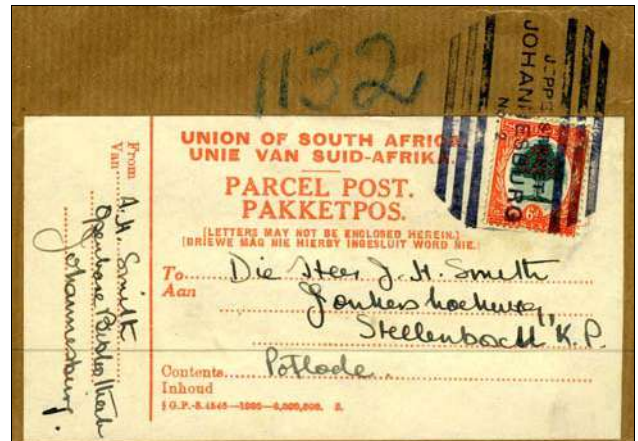 1132
JEPPE
JOHANNESBURG
No. 2
6d
UNION OF SOUTH AFRICA.
UNIE VAN SUID-AFRIKA.
PARCEL POST.
PAKKETPOS.
[LETTERS MAY NOT BE ENCLOSED HEREIN.]
[BRIEWE MAG NIE HIERBY INGESLUIT WORD NIE.]
To Die Heer J. H. Smith
Aan Jonkershoekweg,
Stellenbosch K.P.
Contents Potlode
Inhoud
From A. H. Smith
Van Openbare Biblioteek
Johannesburg.